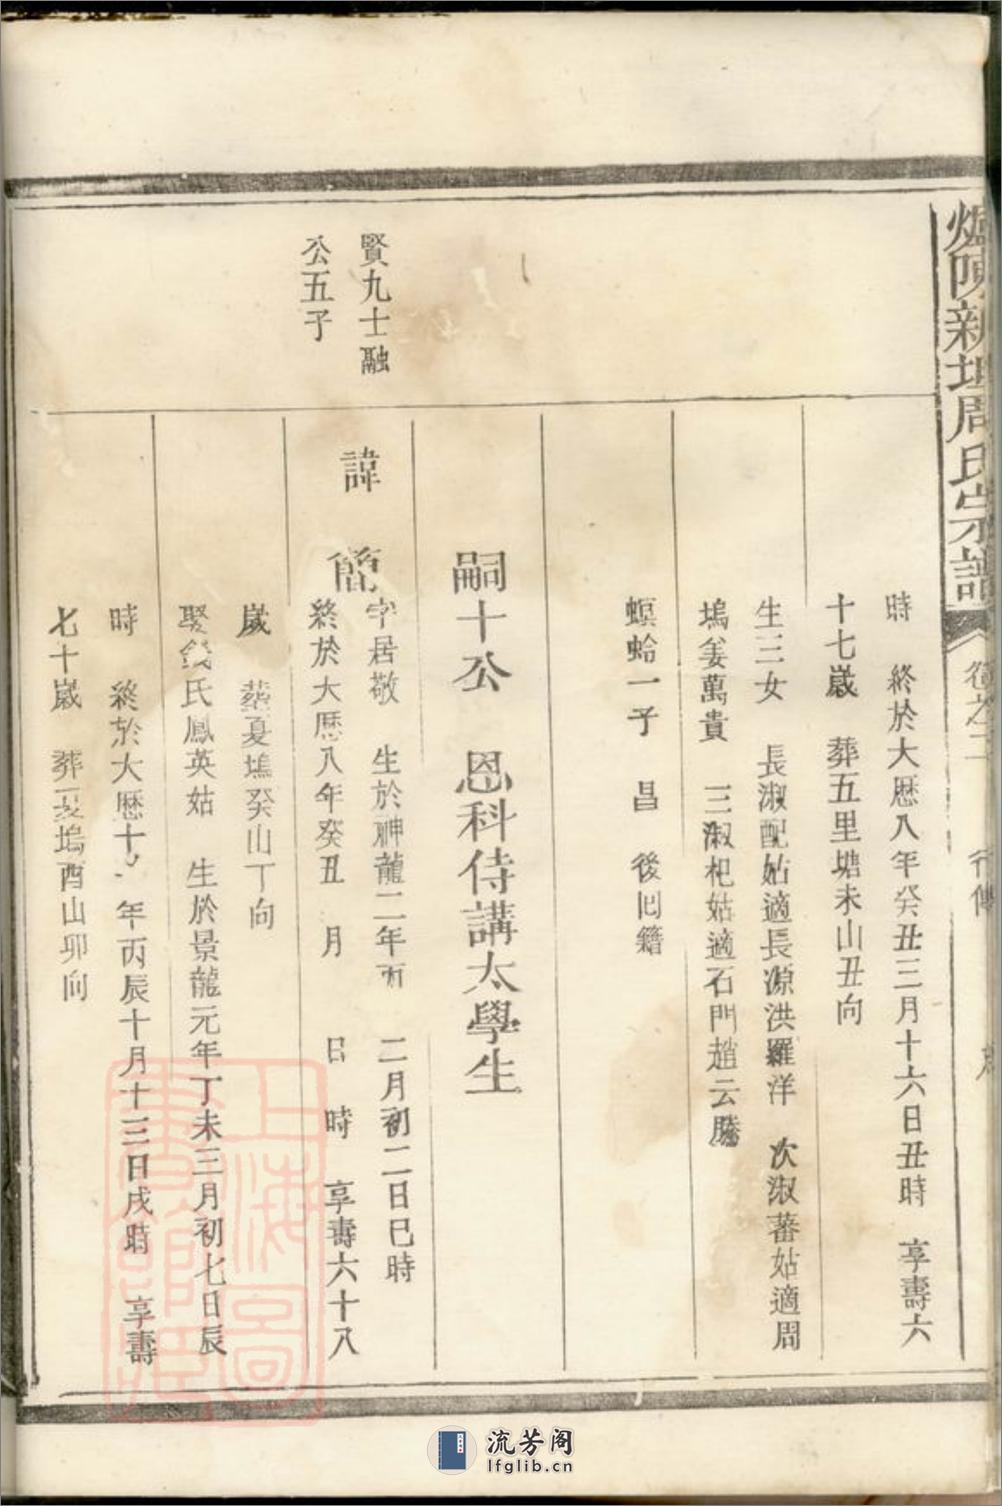 新 周氏宗譜
卷之二
行傳
時 終於大歷八年癸丑三月十六日丑時 享壽六
十七歲 葬五里塘未山丑向
生三女 長淑配姑適長源洪羅洋 次淑蕃姑適周
塢姜萬貴 三淑杞姑適石門趙云騰
螟蛉一子 昌 後囘籍
嗣十公 恩科侍講太學生
賢九士融
公五子
諱 簡
字居敬 生於神龍二年丙 二月初二日巳時
終於大歷八年癸丑 月 日 時 享壽六十八
歲 葬夏塢癸山丁向
娶錢氏鳳英姑 生於景龍元年丁未三月初七日辰
時 終於大歷十 年丙辰十月十三日戌時 享壽
七十歲 葬夏塢酉山卯向
上海圖書館藏
流芳阁
lfglib.cn